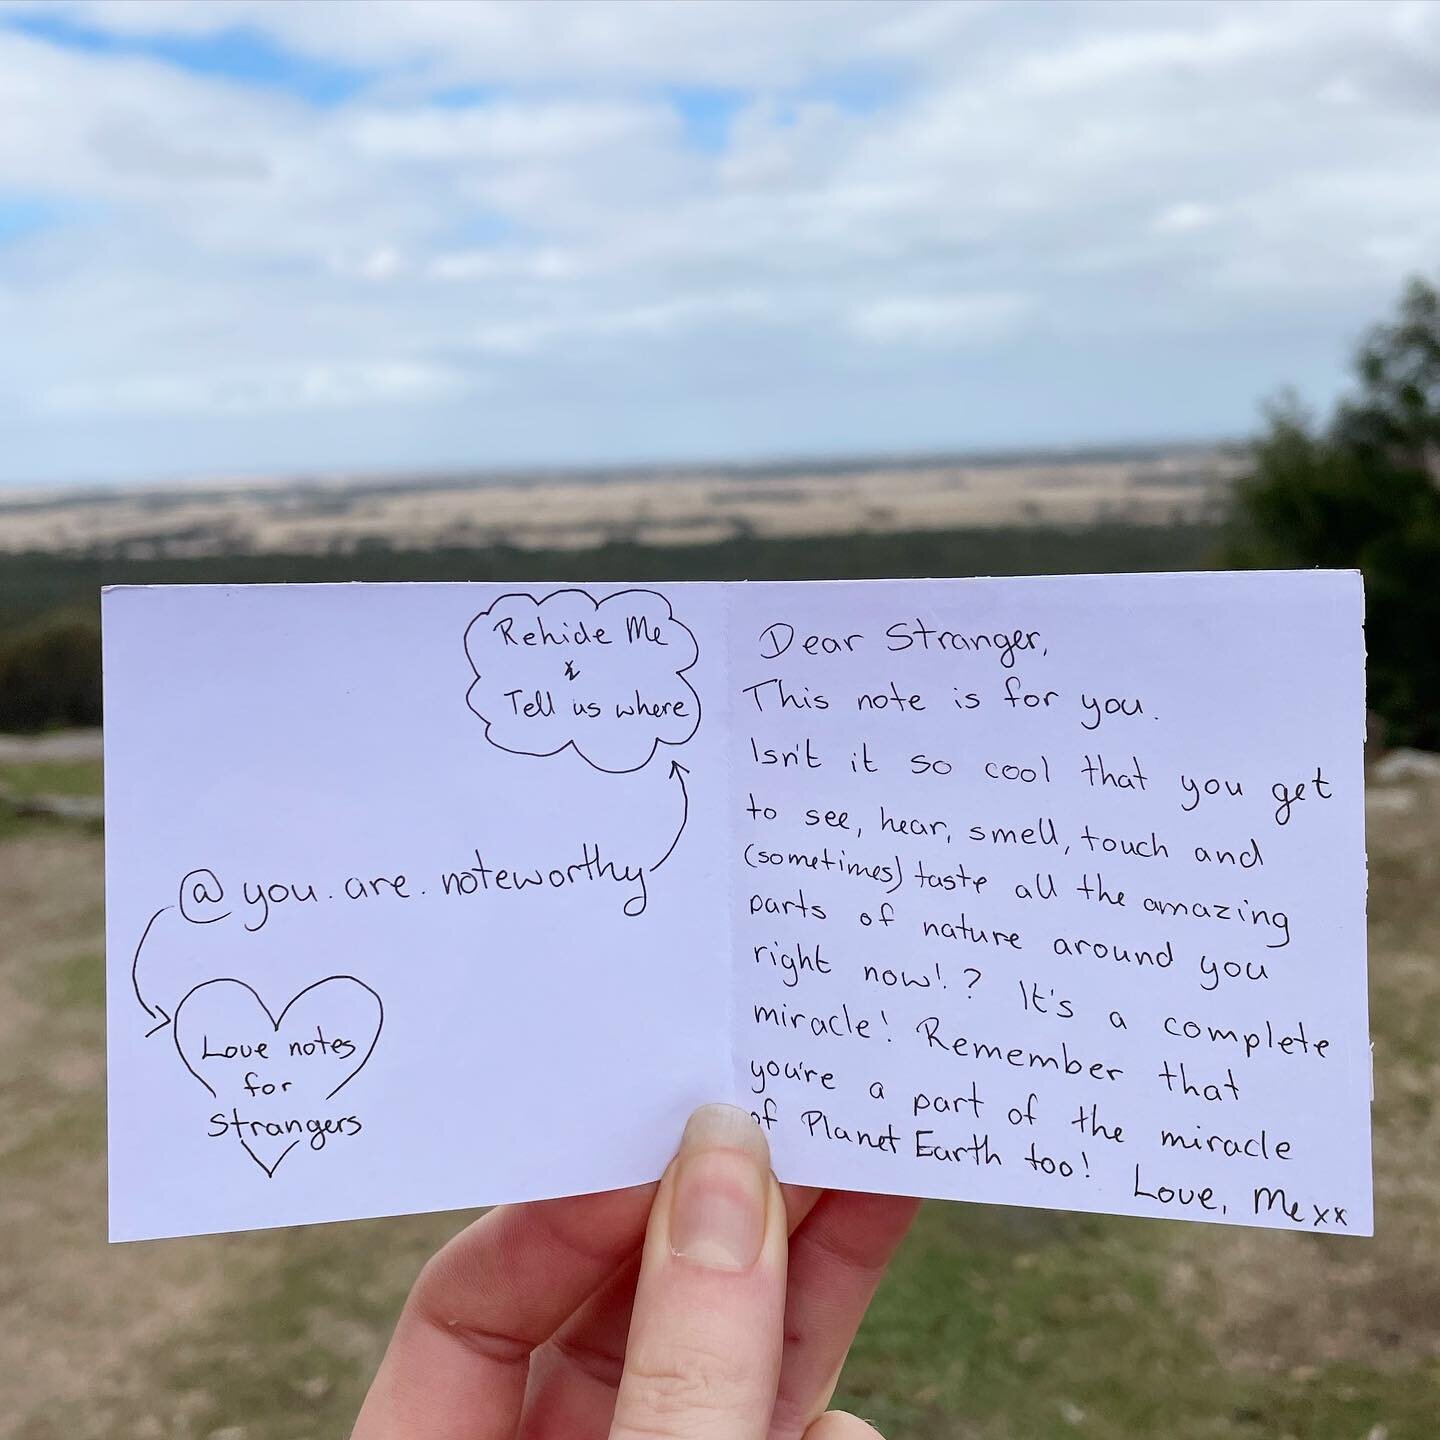 Rehide Me
&
Tell us where
@you.are.noteworthy
Love notes
for
Strangers
Dear Stranger,
This note is for you.
Isn't it so cool that you get
to see, hear, smell, touch and
(sometimes) taste all the amazing
parts of nature around you
right now!? It's a complete
miracle! Remember that
you're a part of the miracle
of Planet Earth too!
Love, Me xx